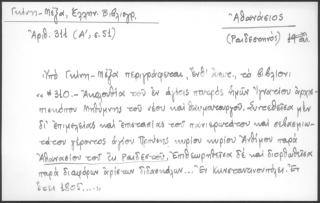 Γκίνη-Μέξα, Ελλην. Βιβλιογρ.
Ἀριθ. 311 (Α', σ. 51)
Ἀθανάσιος
(Ραιδεστηνός)
Ὑπὸ Γκίνη-Μέξα περιγράφεται, ἔνθ' ἀνωτ., τὸ βιβλίον:
«#310.- Ἀκολουθία τοῦ ἐν ἁγίοις πατρὸς ἡμῶν Ἰγνατίου ἀρχιε-
πισκόπου Μηθύμνης τοῦ νέου καὶ θαυματουργοῦ. Συντεθεῖσα μὲν
δι' ἐπιμελείας καὶ ἐπιστασίας τοῦ πανιερωτάτου καὶ σεβασμιω-
τάτου γέροντος ἁγίου κυρίου κυρίου Ἀνθίμου παρὰ
Ἀθανασίου τοῦ ἐκ Ραιδεστοῦ, Ἐπιθεωρηθεῖσα δὲ καὶ διορθωθεῖσα
παρὰ διαφόρων ἀρίστων διδασκάλων... Ἐν Κωνσταντινουπόλει. Ἐν
ἔτει 1805.....